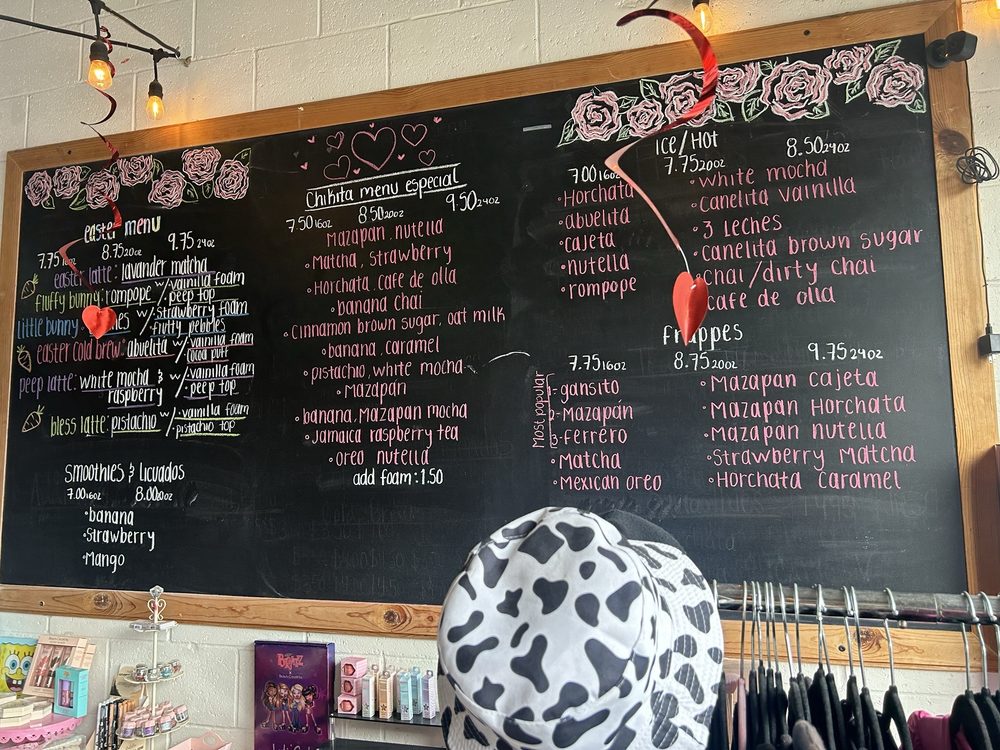 easter menu
7.75 16oz 8.75 20oz 9.75 24oz
easter latte: lavander matcha
fluffy bunny: rompope w/ vainilla foam
peep top
little bunny: w/ strawberry foam
fluity pebbles
easter cold brew: abuelita w/ vainilla foam
cocoa puff
peep latte: white mocha & raspberry w/ vainilla foam
peep top
bless latte: pistachio w/ vanilla foam
pistachio top
Smoothies & Licuados
7.00 16oz 8.00 20oz
•banana
•Strawberry
•Mango
Chikita menu especial
7.50 16oz 8.50 20oz 9.50 24oz
Mazapan, nutella
•Matcha, Strawberry
•Horchata, cafe de olla
•banana chai
•cinnamon brown sugar, oat milk
•banana, caramel
•pistachio, white mocha
•Mazapan
•banana, Mazapan mocha
•Jamaica raspberry tea
•oreo nutella
add foam: 1.50
ICE/HOT
7.00 16oz 7.75 20oz 8.50 24oz
•Horchata
•abuelita
•cajeta
•nutella
•rompope
•white mocha
•canelita vainilla
•3 LECHES
•Canelita brown sugar
•Chai/dirty chai
cafe de olla
frappes
7.75 16oz 8.75 20oz 9.75 24oz
Most popular
1-gansito
2-Mazapán
3-ferrero
•Matcha
•Mexican oreo
•Mazapan cajeta
•Mazapan Horchata
•Mazapan nutella
•Strawberry Matcha
•Horchata caramel
BRATZ